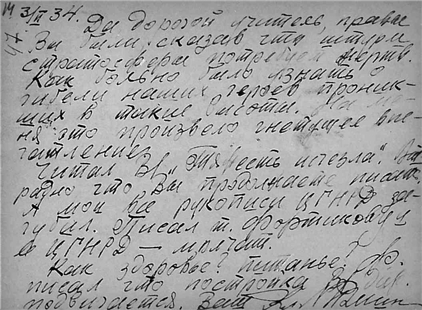 М 3/II 34.
47. Да дорогой учитель, правы
Вы были, сказав что штурм
стратосферы потребует жертв.
Как больно было узнать о
гибели наших героев проник-
ших в такие высоты. На ме-
ня это произвело гнетущее впе-
чатление.
Читал В/ "Тяжесть исчезла". От-
радно что Вы продолжаете писать.
А мои все рукописи ЦГНРД за-
губил. Писал т. Фортикову
в ЦГНРД — молчат.
Как здоровье? питанье?
писал что постройка
подвигается. Ваш